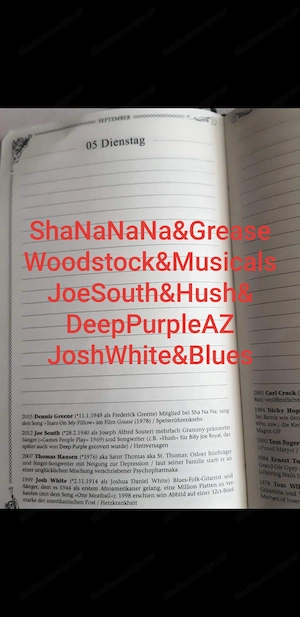 SEPTEMBER
05 Dienstag
ShaNaNaNa&Grease
Woodstock&Musicals
JoeSouth&Hush&
DeepPurpleAZ
JoshWhite&Blues
2015 Dennis Greene (*11.1.1949 als Frederick Greene) Mitglied bei Sha Na Na; sang
den Song »Tears On My Pillow« im Film Grease (1978) / Speiseröhrenkrebs
2012 Joe South (*28.2.1940 als Joseph Alfred Souter) mehrfach Grammy-prämierter
Sänger (»Games People Play« 1969) und Songwriter (z.B. »Hush« für Billy Joe Royal, das
später auch von Deep Purple gecovert wurde) / Herzversagen
2007 Thomas Hansen (*1976) aka Saint Thomas aka St. Thomas; Osloer Briefträger
und Singer-Songwriter mit Neigung zur Depression / laut seiner Familie starb er an
einer unglücklichen Mischung verschriebener Psychopharmaka
1969 Josh White (*2.11.1914 als Joshua Daniel White) Blues-Folk-Gitarrist und
-Sänger, dem es 1944 als erstem Afroamerikaner gelang, eine Million Platten zu ver-
kaufen (mit dem Song »One Meatball«); 1998 erschien sein Abbild auf einer 32ct-Brief-
marke der amerikanischen Post / Herzkrankheit
2001 Carl Crack (
Kid; veröffentlicht
1994 Nicky Hop
1990 Tom Foger
1984 Ernest Tu
Grand Ole Opry
1978 Tom Wil
Columbia, und
Mothers of Inve